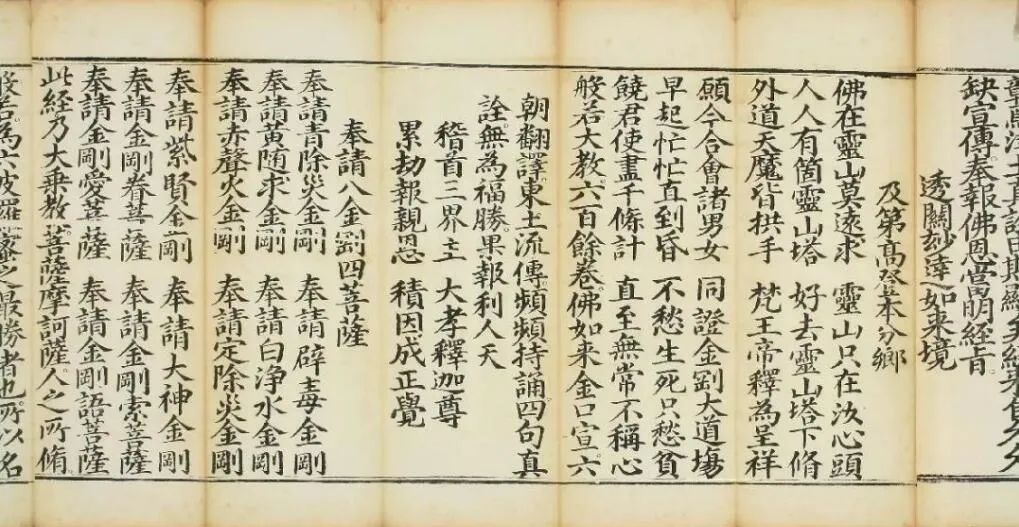 土真詮
缺宣傳。奉報佛恩當明經旨。
透關玅達如来境
及第高登本分鄉
佛在靈山莫遠求 靈山只在汝心頭
人人有箇靈山塔 好去靈山塔下脩
外道天魔皆拱手 梵王帝釋為呈祥
願今合會諸男女 同證金剛大道塲
早起忙忙直到昏 不愁生死只愁貧
饒君使盡千條計 直至無常不稱心
般若大教六百餘卷佛如来金口宣六
朝翻譯東土流傳頻頻持誦四句真
詮無為福勝果報利人天
稽首三界主 大孝釋迦尊
累劫報親恩 積因成正覺
奉請八金剛四菩薩
奉請青除災金剛 奉請辟毒金剛
奉請黄隨求金剛 奉請白浄水金剛
奉請赤聲火金剛 奉請定除災金剛
奉請紫賢金剛 奉請大神金剛
奉請金剛眷菩薩 奉請金剛索菩薩
奉請金剛愛菩薩 奉請金剛語菩薩
此經乃大乗教菩薩摩訶薩人之所脩
般若為六波羅蜜之最勝者也。所以名